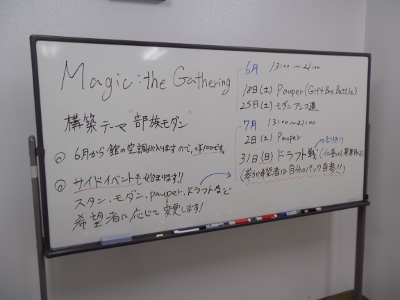 Magic: the Gathering
構築テーマ"部族モダン"
6月から館の空調が入りますので、+¥100です。
サイドイベントもやります!!
スタン、モダン、pauper、ドラフトなど
希望者に応じて変更します!
6月 13:00〜21:00
18日(土) Pauper (Gift Box Battle)
25日(土) モダン
7月 13:00〜21:00
2日(土) Pauper
31日(日) ドラフト戦
希望者は自分のパック自参!!